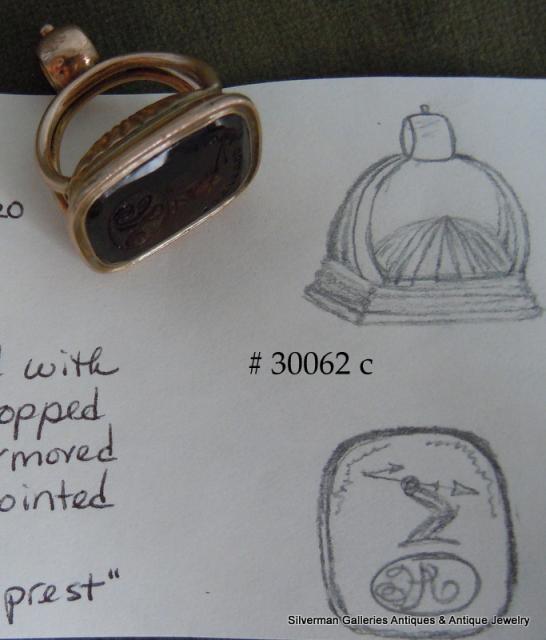 20
with
opped
rmoved
ointed
prest"
# 30062 c
Silverman Galleries Antiques & Antique Jewelry